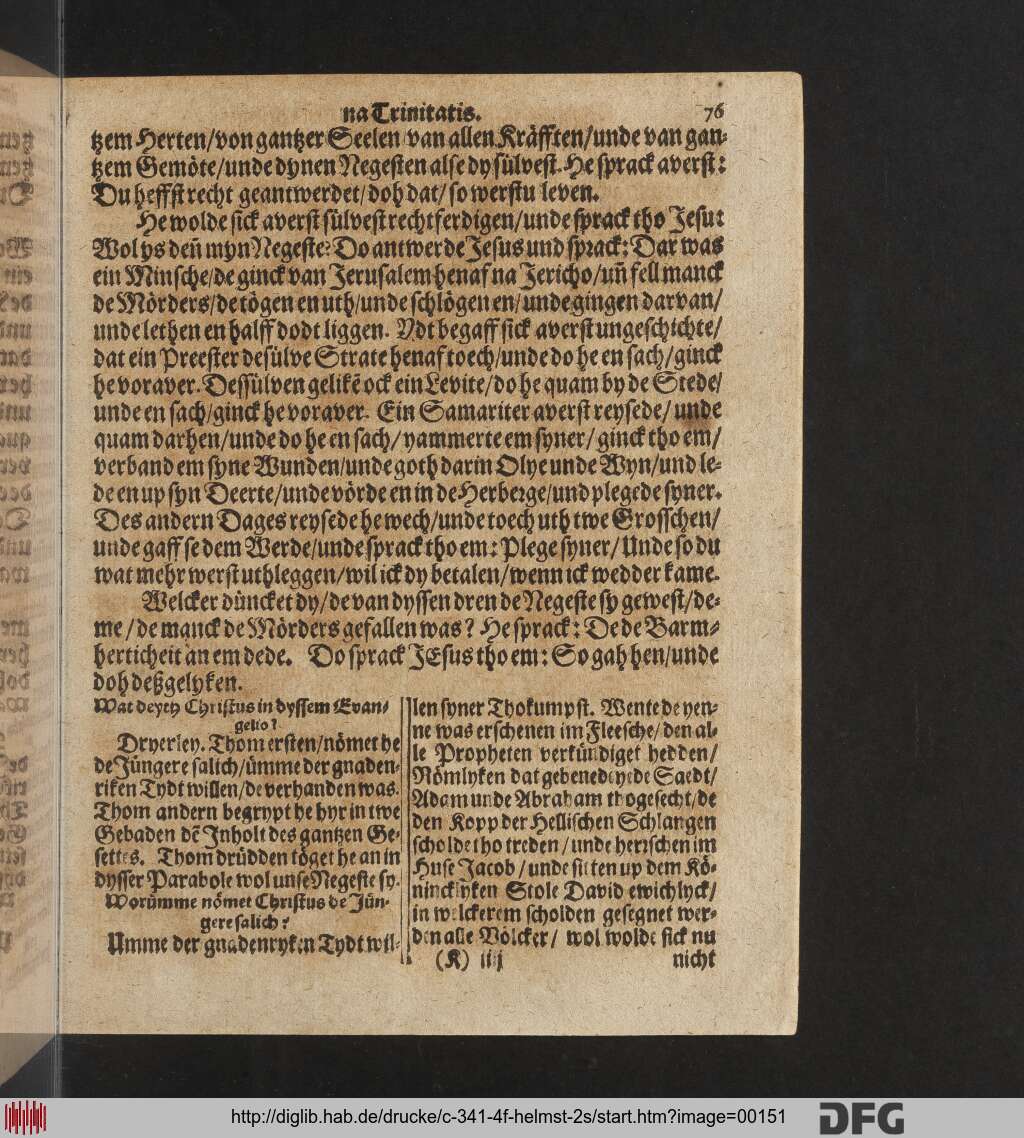 na Trinitatis. 76
tzem Herten/von gantzer Seelen van allen Kräfften/unde van gan-
tzem Gemöte/unde dynen Negesten alse dy sülvest. He sprack averst:
Du heffst recht geantwerdet/doh dat/so werstu leven.
He wolde sick averst sülvest rechtferdigen/unde sprack tho Jesu:
Wol ys deñ myn Negeste? Do antwerde Jesus und sprack: Dar was
ein Minsche/de ginck van Jerusalem henaf na Jericho/uñ fell manck
de Mörders/de tögen en uth/unde schlögen en/unde gingen darvan/
unde lethen en halff dodt liggen. Ydt begaff sick averst ungeschichte/
dat ein Preester desülve Strate henaf toech/unde do he en sach/ginck
he voraver. Dessülven gelikẽ ock ein Levite/do he quam by de Stede/
unde en sach/ginck he voraver. Ein Samariter averst reysede/unde
quam darhen/unde do he en sach/yammerte em syner/ginck tho em/
verband em syne Wunden/unde goth darin Olye unde Wyn/und le-
de en up syn Deerte/unde vörde en in de Herberge/und plegede syner.
Des andern Dages reysede he wech/unde toech uth twe Grosschen/
unde gaff se dem Werde/unde sprack tho em: Plege syner/Unde so du
wat mehr werst uthleggen/wil ick dy betalen/wenn ick wedder kame.
Welcker düncket dy/de van dyssen dren de Negeste sy gewest/de-
me/de manck de Mörders gefallen was? He sprack: De de Barm-
herticheit an em dede. Do sprack JEsus tho em: So gah hen/unde
doh deßgelyken.
Wat deyth Christus in dyssem Evan-
gelio?
Dryerley. Thom ersten/nömet he
de Jüngere salich/ümme der gnaden-
riken Tydt willen/de verhanden was.
Thom andern begrypt he hyr in twe
Gebaden dẽ Jnholt des gantzen Ge-
settes. Thom drüdden töget he an in
dysser Parabole wol unse Negeste sy.
Worümme nömet Christus de Jün-
gere salich?
Umme der gnadenryken Tydt wil-
len syner Thokumpst. Wente de yen-
ne was erschenen im Fleesche/den al-
le Propheten verkündiget hedden/
Nömlyken dat gebenedeyede Saedt/
Adam unde Abraham thogesecht/de
den Kopp der Hellischen Schlangen
scholde tho treden/unde herrschen im
Huse Jacob/unde sitten up dem Kö-
nincklyken Stole David ewichlyck/
in welckerem scholden gesegnet wer-
den alle Völcker/ wol wolde sick nu
(K) iiij nicht
http://diglib.hab.de/drucke/c-341-4f-helmst-2s/start.htm?image=00151 DFG